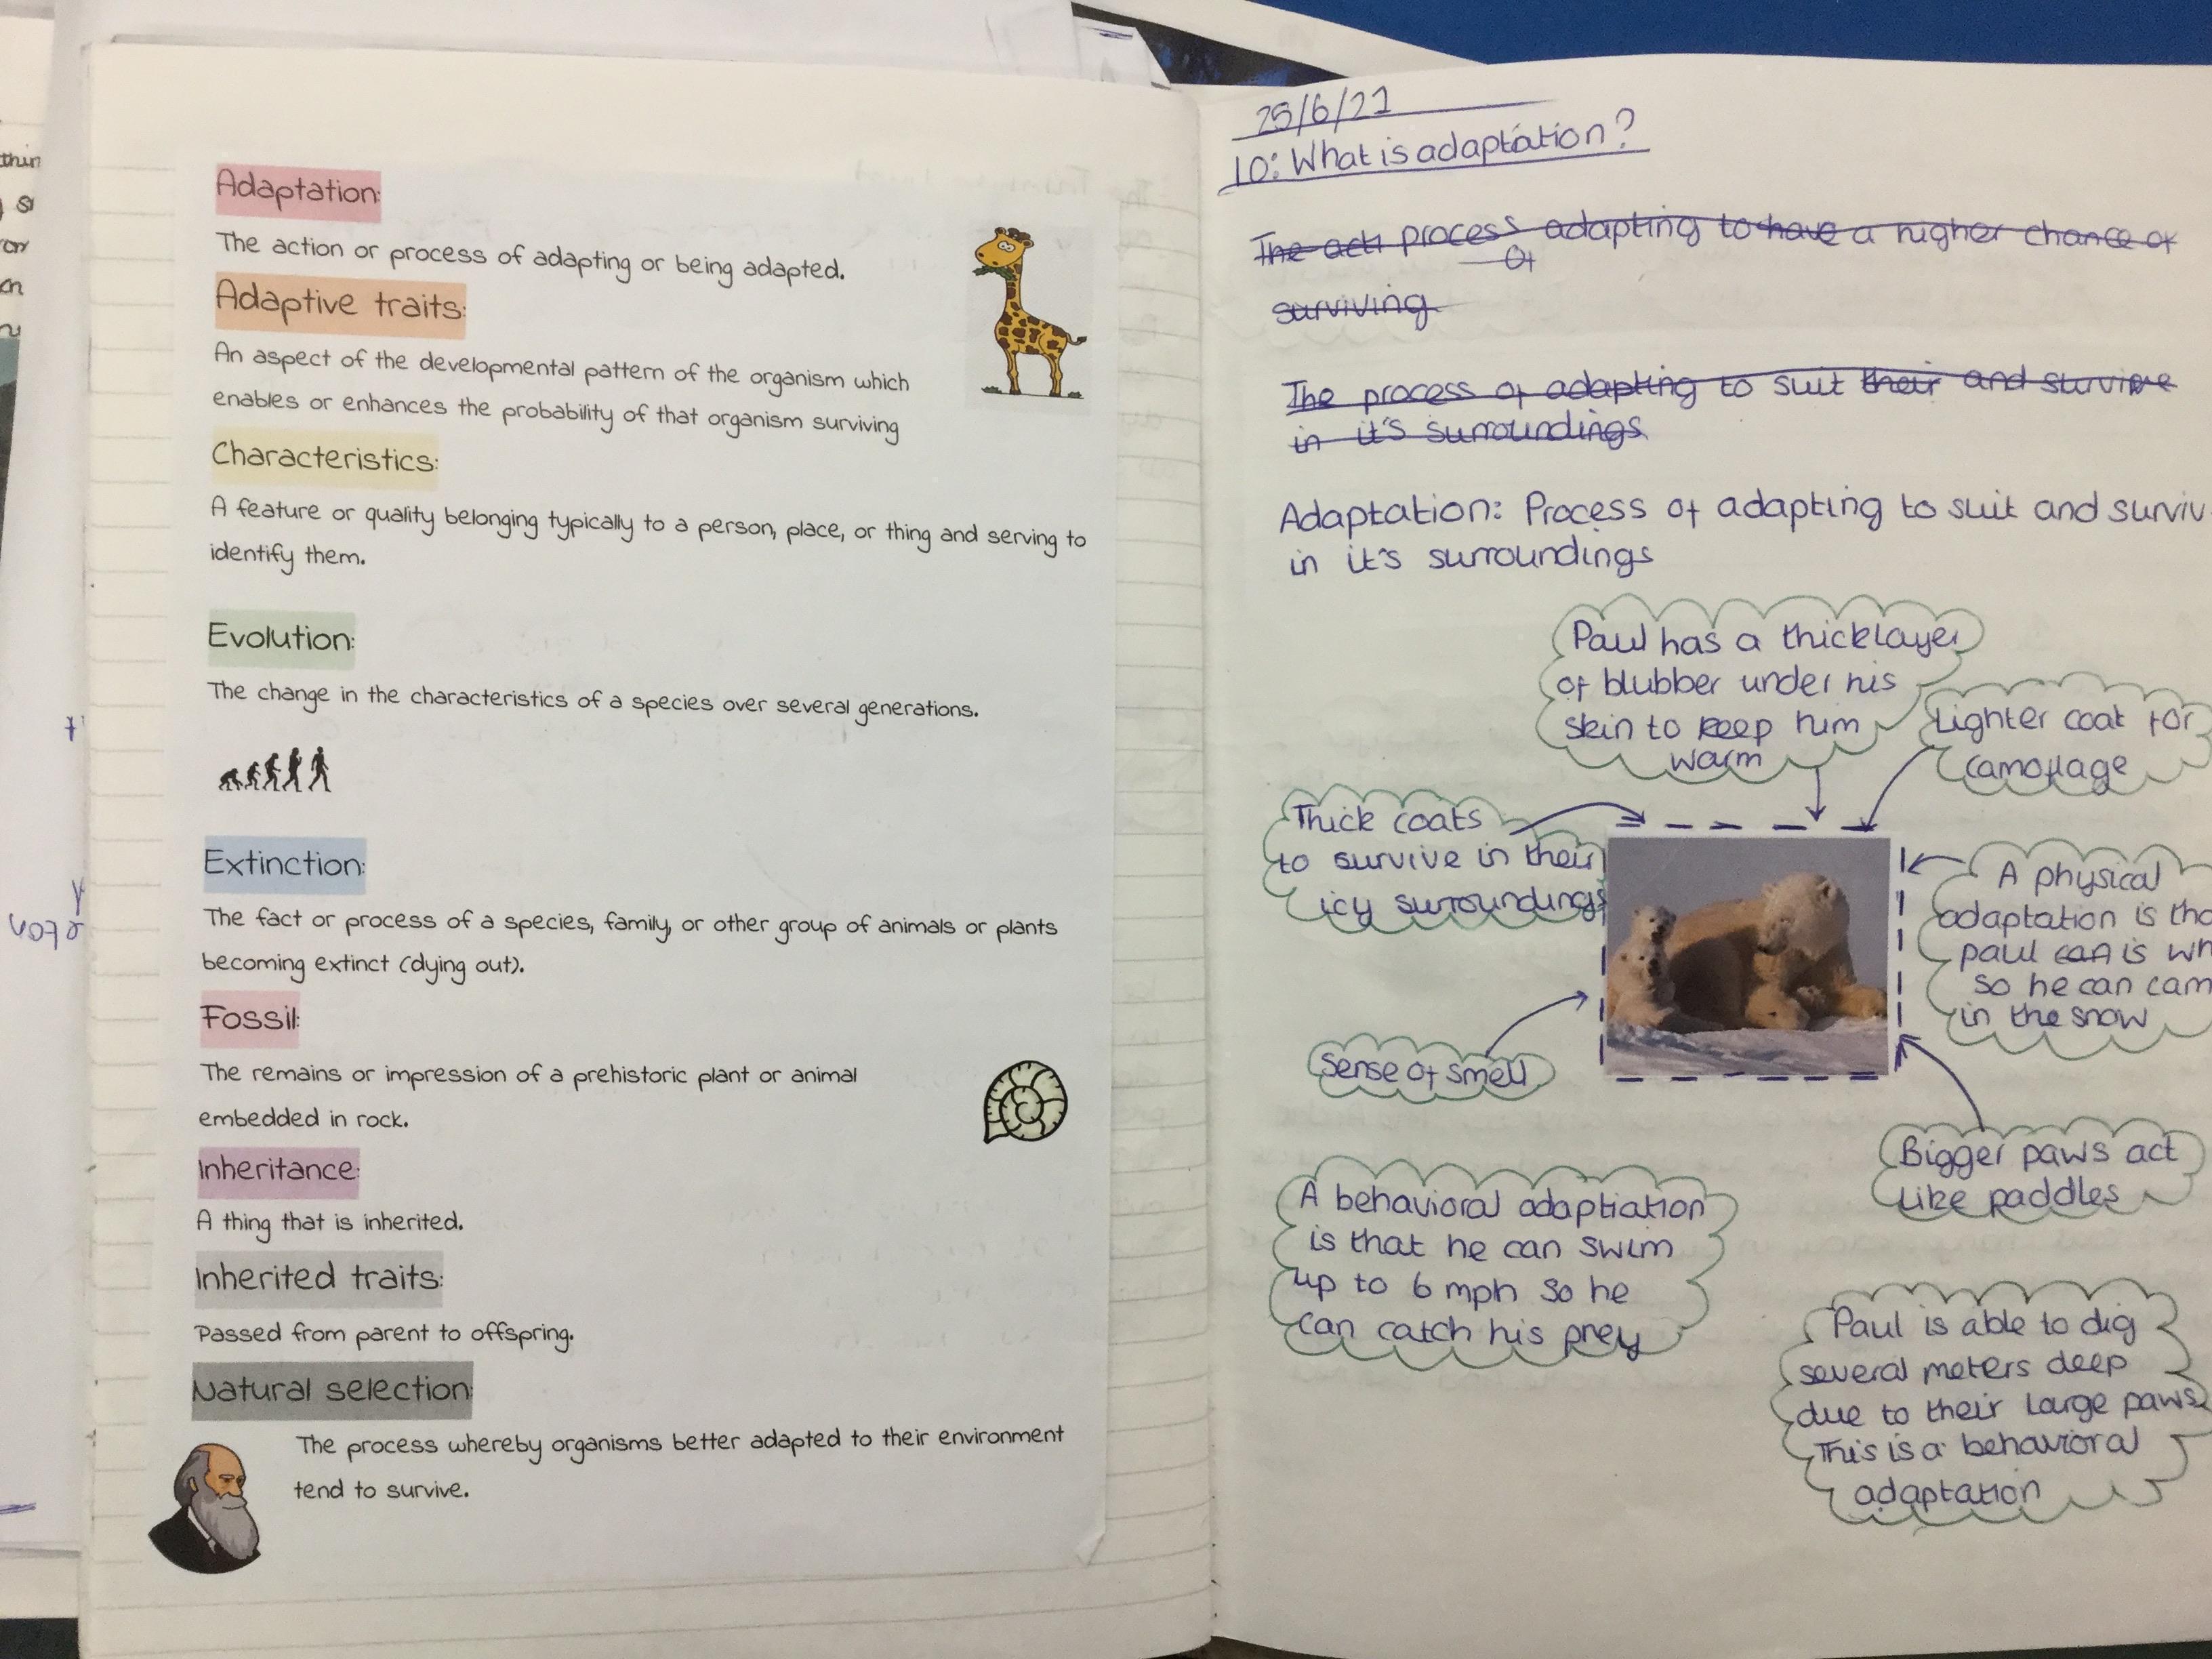 Adaptation:
The action or process of adapting or being adapted.
Adaptive traits:
An aspect of the developmental pattern of the organism which
enables or enhances the probability of that organism surviving
Characteristics:
A feature or quality belonging typically to a person, place, or thing and serving to
identify them.
Evolution:
The change in the characteristics of a species over several generations.
Extinction:
The fact or process of a species, family, or other group of animals or plants
becoming extinct (dying out).
Fossil:
The remains or impression of a prehistoric plant or animal
embedded in rock.
Inheritance:
A thing that is inherited.
Inherited traits:
Passed from parent to offspring.
Natural selection:
The process whereby organisms better adapted to their environment
tend to survive.
25/6/21
10: What is adaptation?
The acti process of adapting to have a higher chance of
surviving
The process of adapting to suit their and survive
in it's surroundings
Adaptation: Process of adapting to suit and surviv
in it's surroundings
Paul has a thick layer
of blubber under his
skin to keep him
warm
Lighter coat for
camoflage
Thick coats
to survive in their
icy surroundings
A physical
adaptation is tha
paul can is wh
so he can cam
in the snow
Sense of smell
Bigger paws act
like paddles
A behavioral adaptiation
is that he can swim
up to 6 mph so he
can catch his prey
Paul is able to dig
several meters deep
due to their large paws
This is a behavioral
adaptation